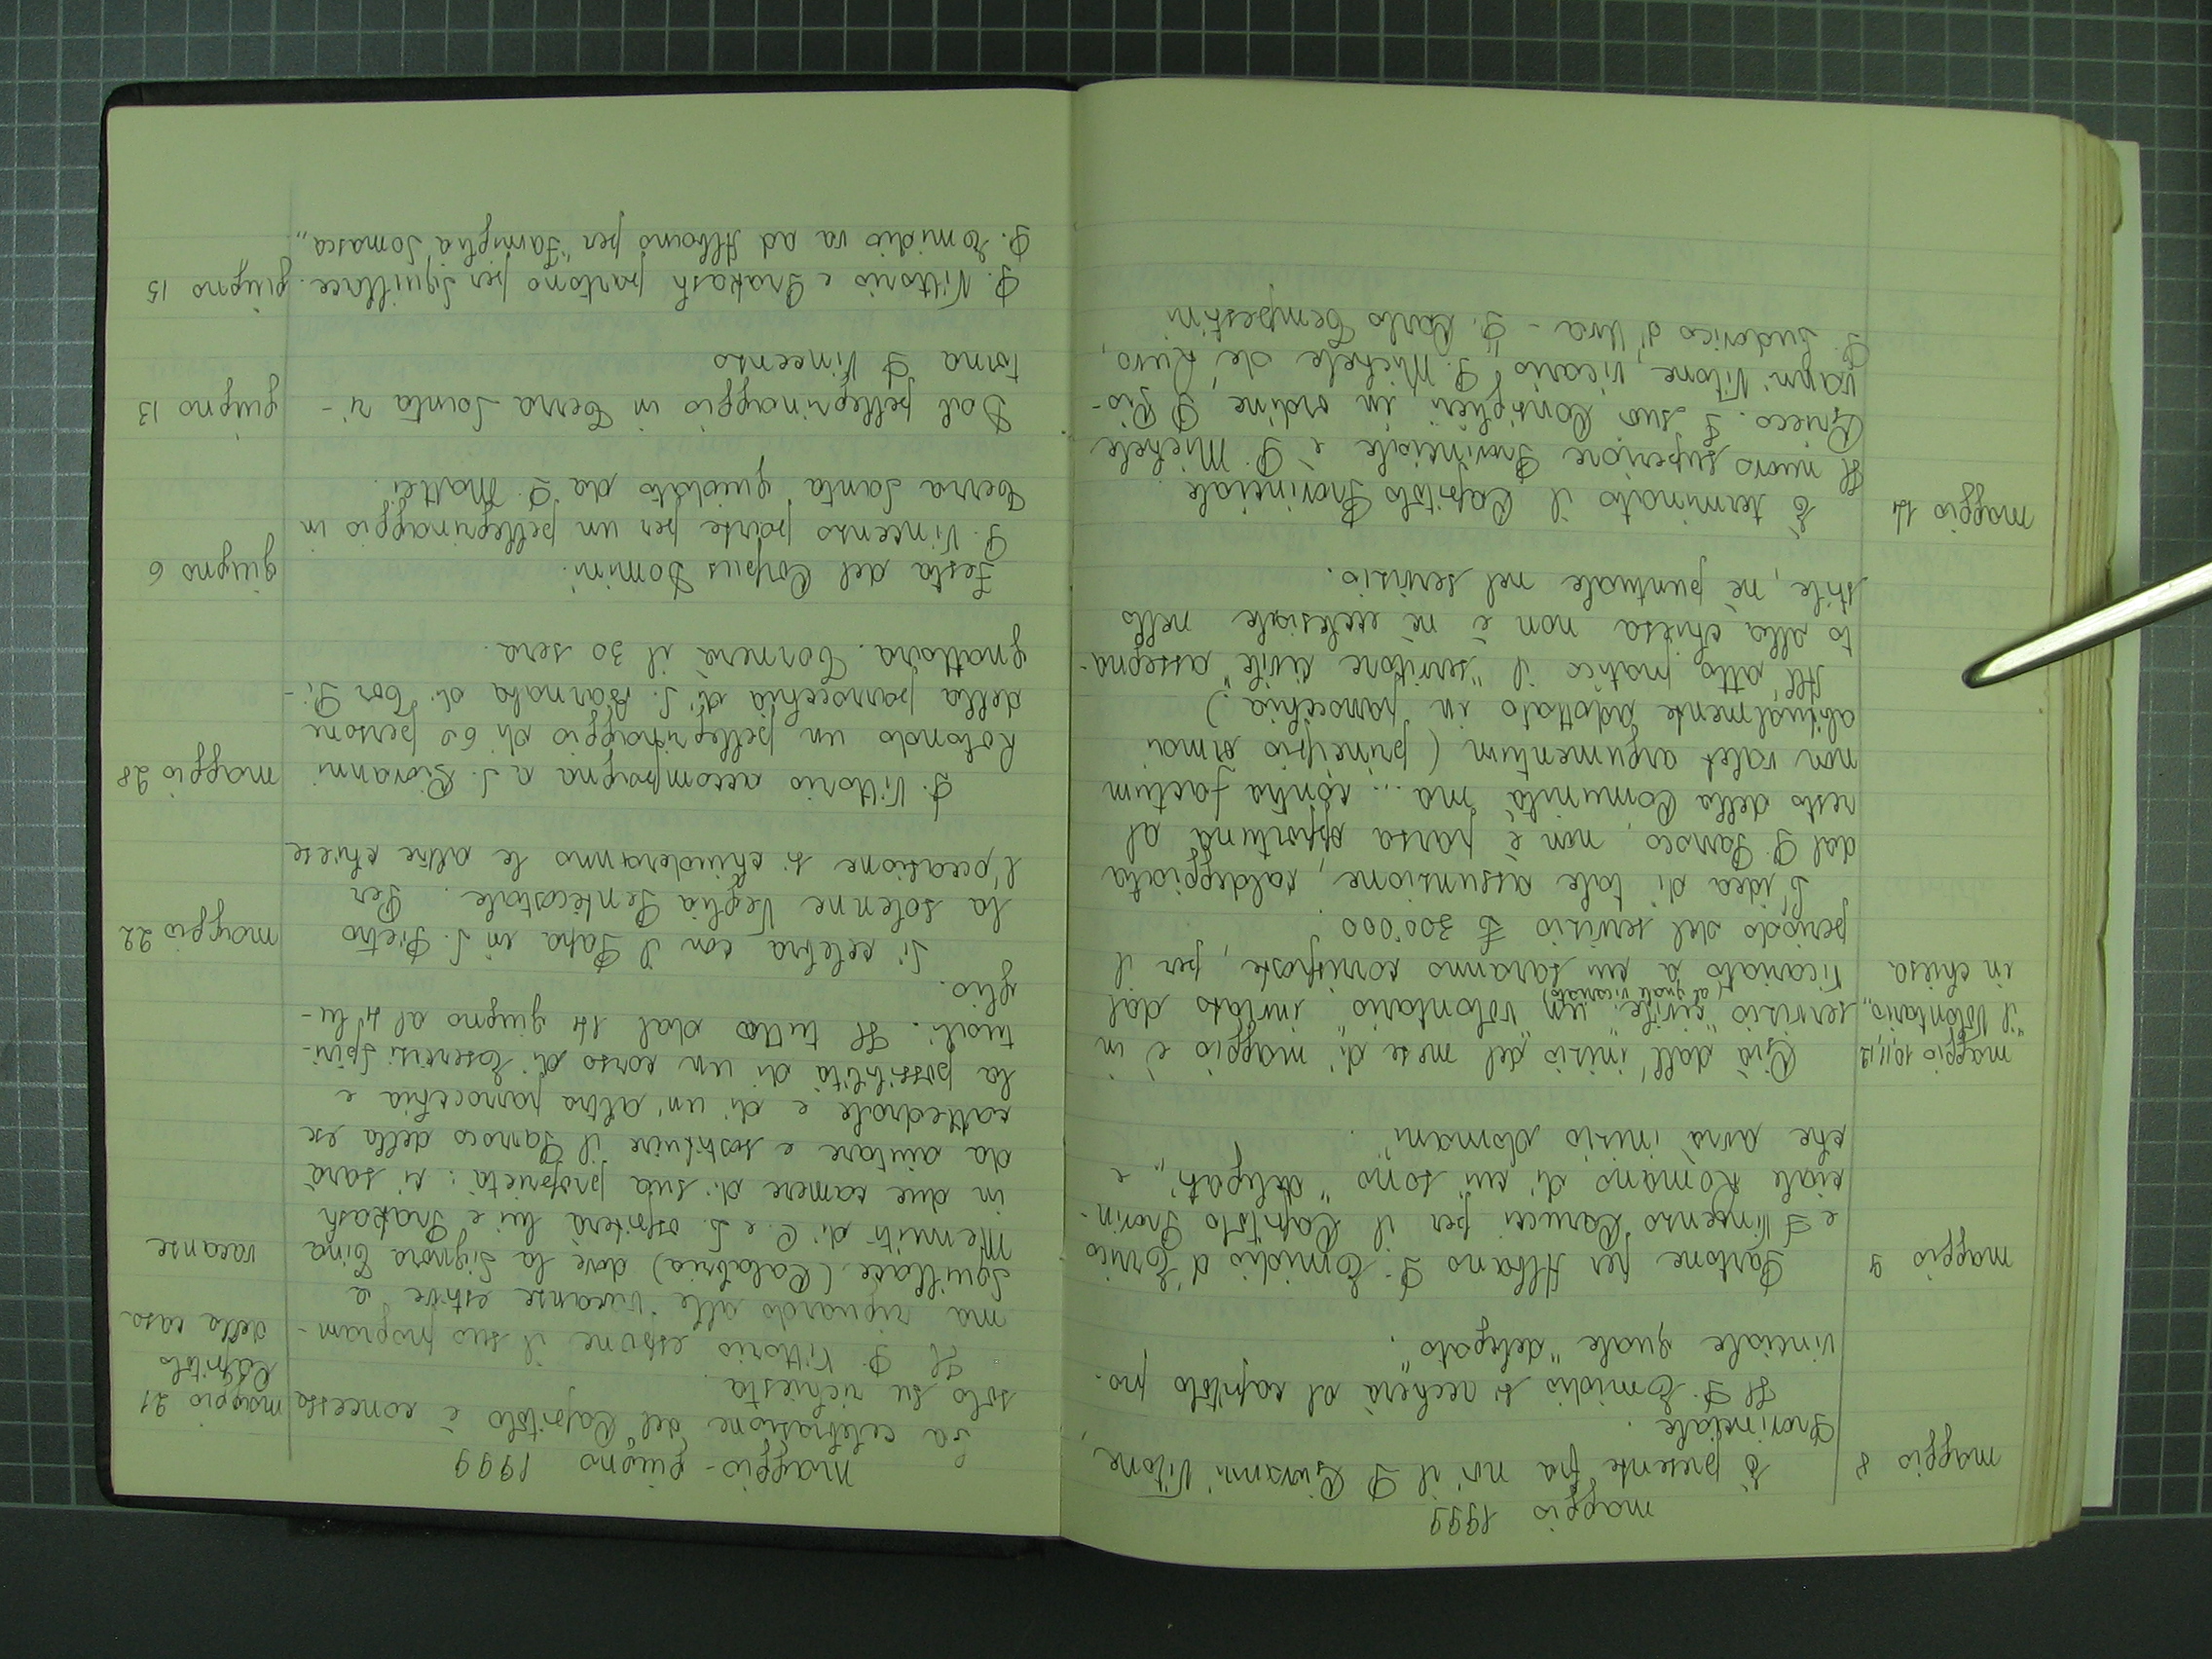 maggio 1999
maggio 8 È presente fra noi il P. Giovanni Vitone,
Provinciale.
Il P. Emidio si recherà al capitolo pro-
vinciale quale "delegato".
maggio 9 Partono per Albano P. Emidio d'Errico
e P. Vincenzo Carucci per il Capitolo Provin-
ciale Romano di cui sono "delegati" e
che avrà inizio domani.
maggio 10,11,12 Già dall'inizio del mese di maggio è in
"il Volontario" servizio "civile" un "volontario" inviato dal
(al quale vicariato)
in chiesa Vicariato a cui saranno corrisposte, per il
periodo del servizio £ 300'000.
L'idea di tale assunzione, caldeggiata
dal P. Parroco, non è parsa opportuna al
resto della Comunità ma... contra factum
non valet argumentum (principio ormai
abitualmente adottato in parrocchia.)
All'atto pratico il "servitore civile" assegna-
to alla chiesa non è nè ecclesiale nello
stile, nè puntuale nel servizio.
maggio 14 È terminato il Capitolo Provinciale.
Il nuovo superiore Provinciale è P. Michele
Grieco. I suoi Consiglieri in ordine P. Gio-
vanni Vitone, vicario, P. Michele de' Ruvo,
P. Ludovico d'Uva - P. Carlo Tempestini
maggio - giugno 1999
La celebrazione del Capitolo è concessa maggio 21
solo su richiesta. Capitolo
Il P. Vittorio espone il suo program- della casa
ma riguardo alle vacanze estive a
Squillace (Calabria) dove la Signora Tina vacanze
Menniti di C. e S. ospiterà lui e Prakash
in due camere di sua proprietà: ci sarà
da aiutare e sostituire il Parroco della ex
cattedrale e di un'altra parrocchia e
la possibilità di un corso di Esercizi Spiri-
tuali. Il tutto dal 14 giugno al 4 lu-
glio.
Si celebra con il Papa in S. Pietro maggio 22
la solenne Veglia Pentecostale. Per
l'occasione si chiuderanno le altre chiese
P. Vittorio accompagna a S. Giovanni maggio 28
Rotondo un pellegrinaggio di 60 persone
della parrocchia di S. Barnaba di Tor Pi-
gnattara. Tornerà il 30 sera.
Festa del Corpus Domini. giugno 6
P. Vincenzo parte per un pellegrinaggio in
Terra Santa guidato da P. Mattei.
Dal pellegrinaggio in Terra Santa ri- giugno 13
torna P. Vincenzo
P. Vittorio e Prakash partono per Squillace. giugno 15
P. Emidio va ad Albano per "Famiglia Somasca"